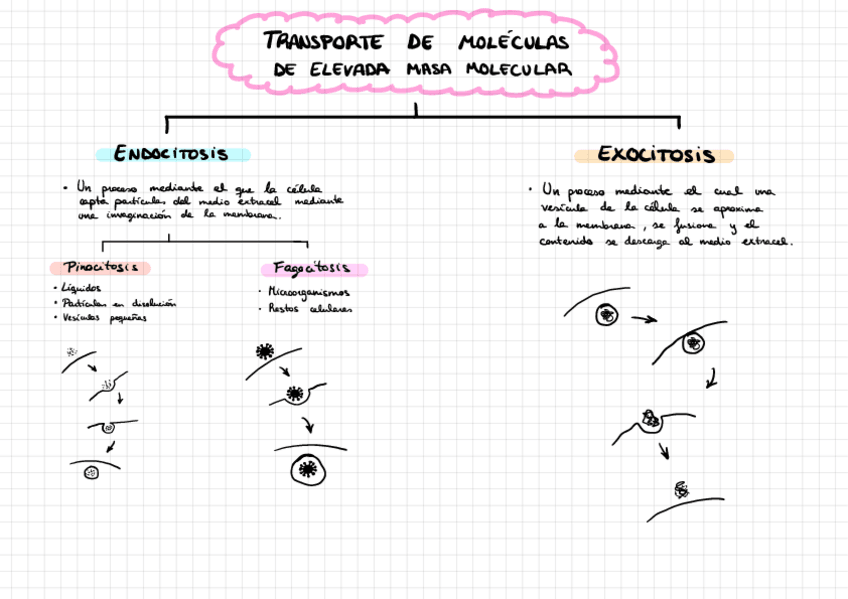 TRANSPORTE DE MOLÉCULAS
DE ELEVADA MASA MOLECULAR
ENDOCITOSIS
• Un proceso mediante el que la célula
capta partículas del medio extracel mediante
una imaginación de la membrana.
Pinocitosis
• Líquidos
• Partículas en disolución
• Vesículas pequeñas
Fagocitosis
• Microorganismos
• Restos celulares
EXOCITOSIS
• Un proceso mediante el cual una
vesícula de la célula se aproxima
a la membrana, se fusiona y el
contenido se descarga al medio extracel.